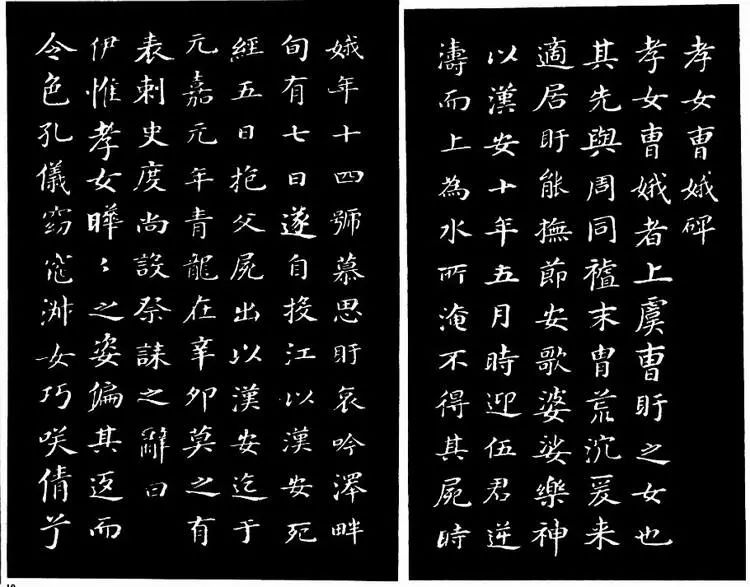 孝女曹娥碑
孝女曹娥者上虞曹盱之女也
其先與周同末胄荒沉爰来
適居盱能撫節安歌婆娑樂神
以漢安十年五月時迎伍君逆
濤而上為水所淹不得其屍時
娥年十四號慕思盱哀吟澤畔
旬有七日遂自投江以漢安死
經五日抱父屍出以漢安迄于
元嘉元年青龍在辛卯莫之有
表刺史度尚設祭誄之辭曰
伊惟孝女曄〻之姿偏其返而
令色孔儀窈窕淑女巧咲倩兮